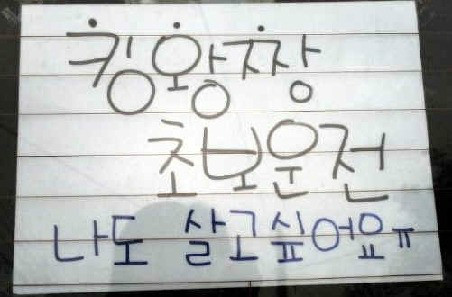 킹왕짱
초보운전
나도 살고싶어요ㅠ